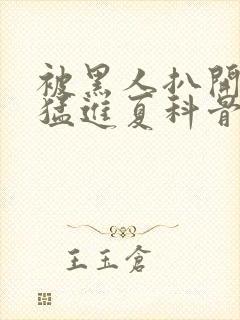 被黑人扒開
猛進夏科骨
王玉倉